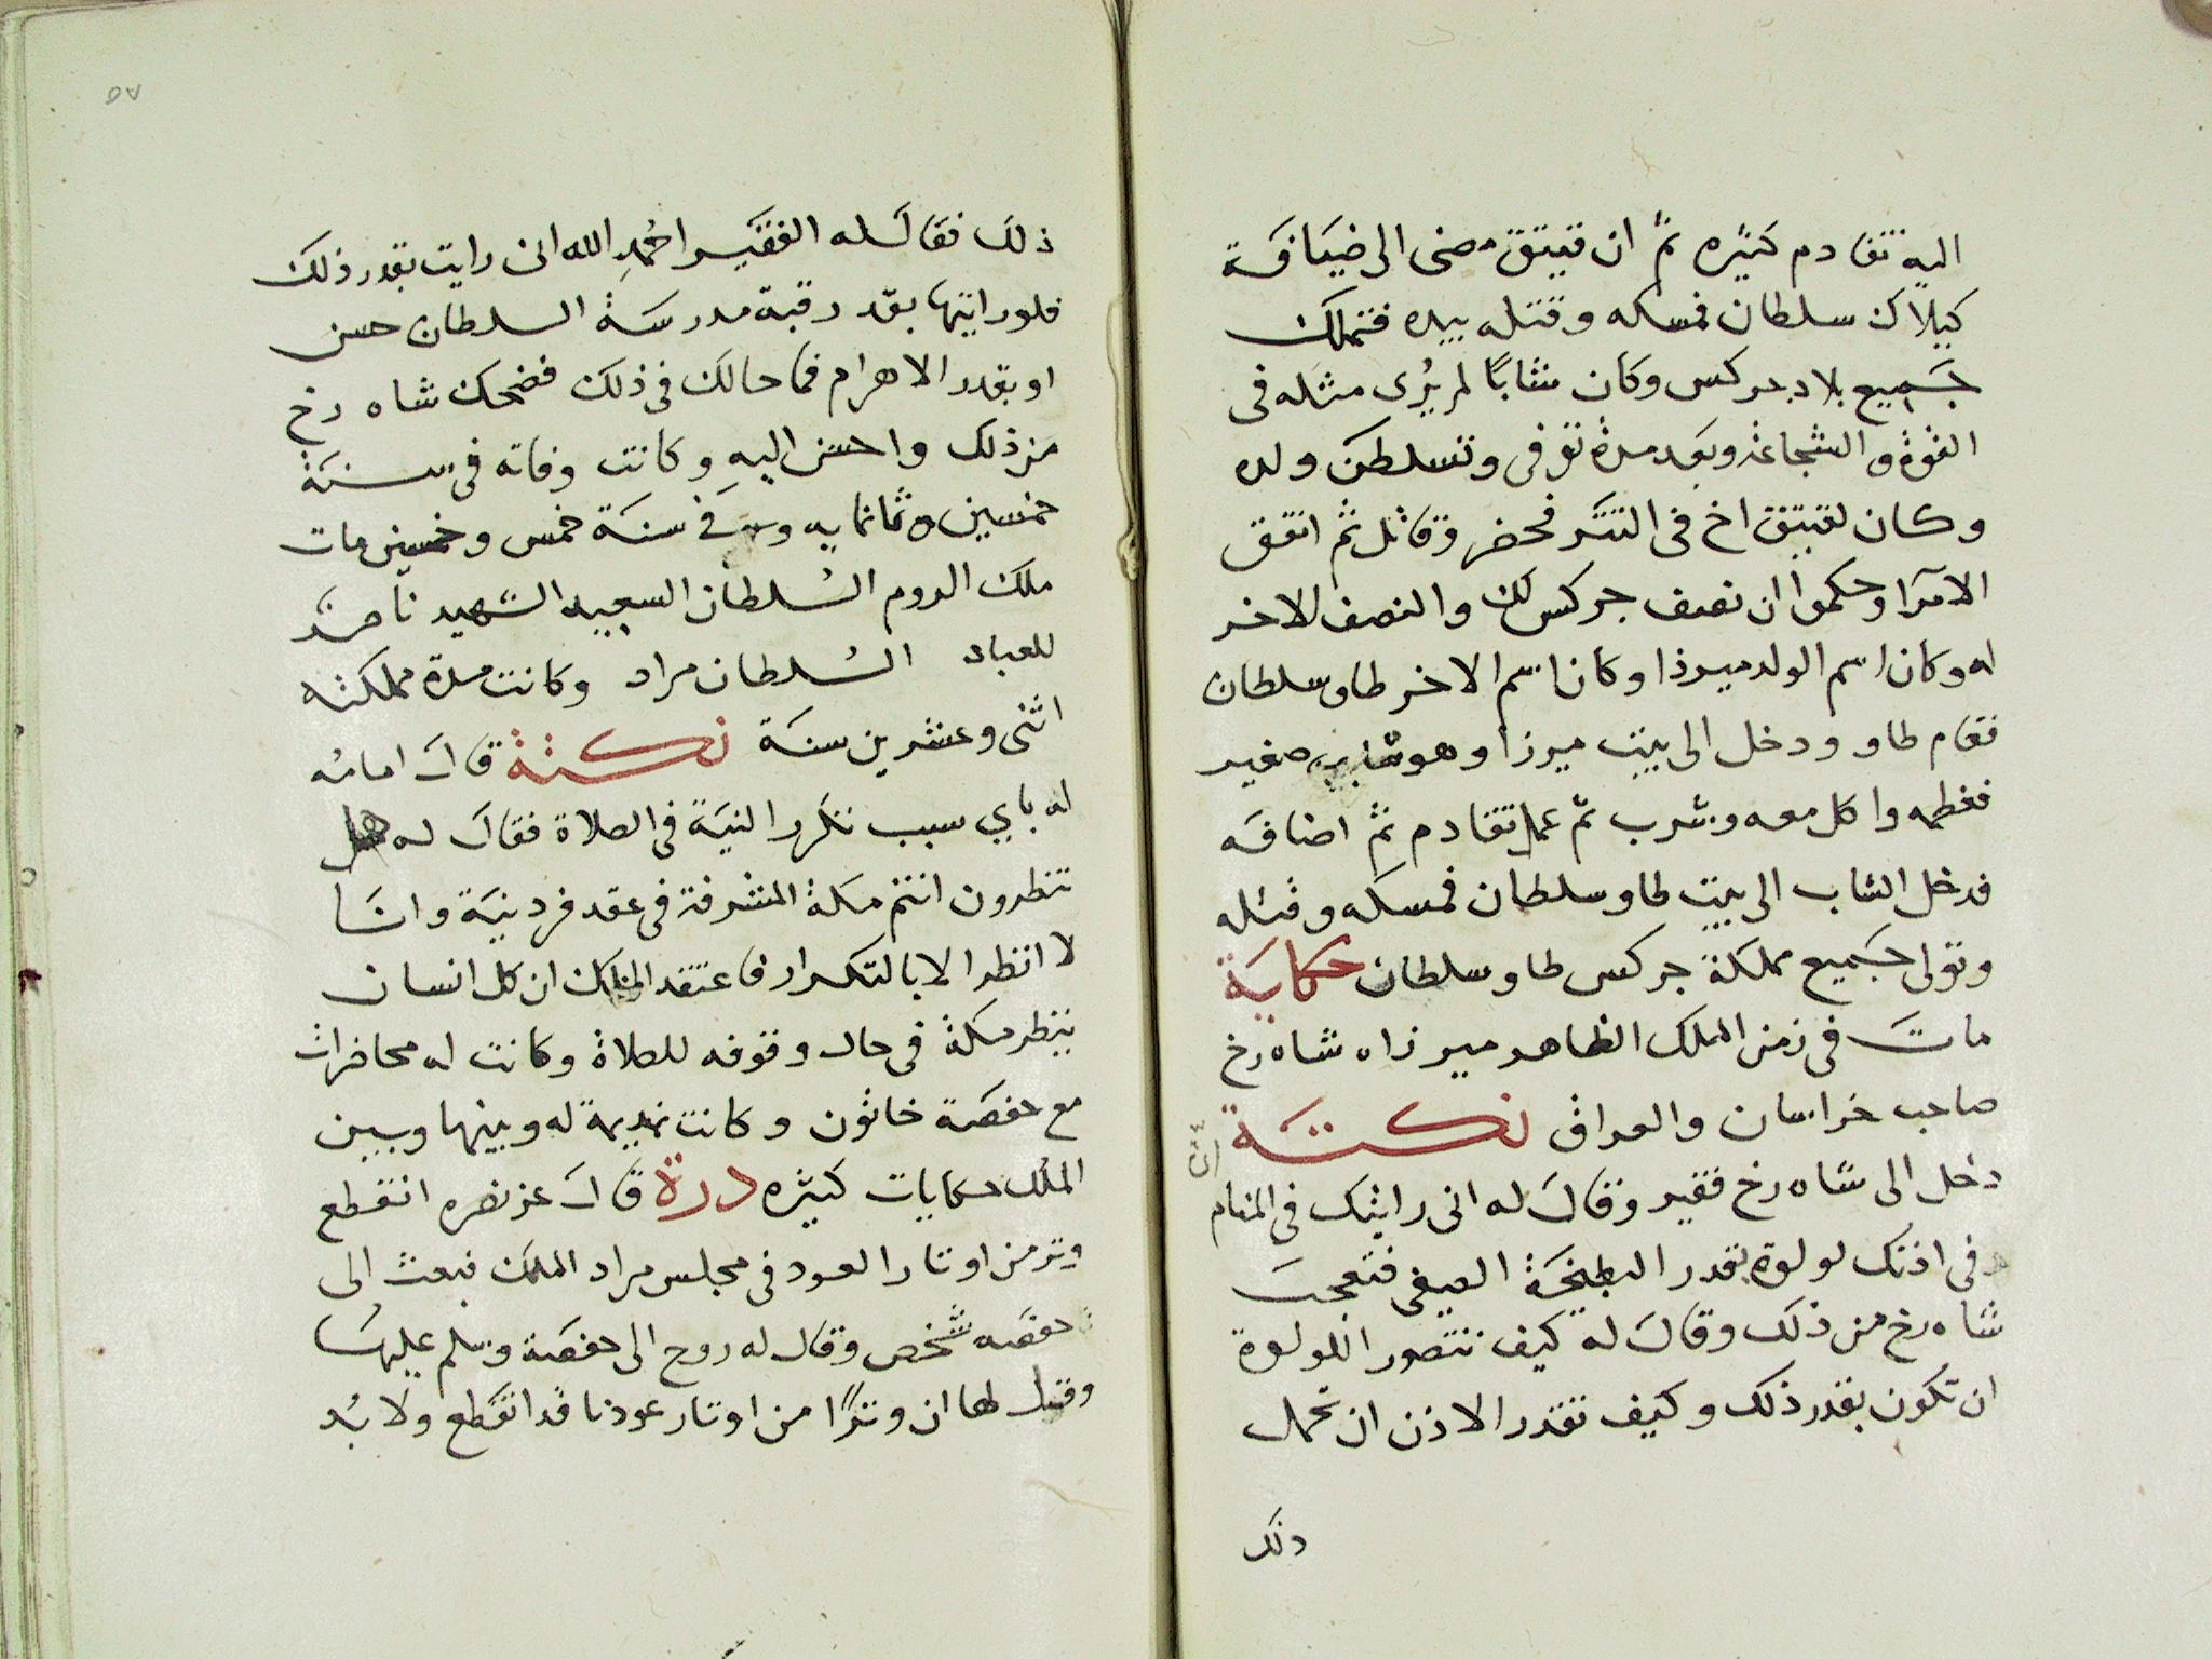 اليه تقادم كثيره ثم ان قيتق مضى الى ضيافة
كيلاك سلطان فمسكه وقتله بيده فتملك
جميع بلاد جركس وكان شابًا لم يُرى مثله فى
القوة والشجاعة وبعد مدة توفى وتسلطن ولده
وكان لقيتق اخ فى التتر فحضر وقاتل ثم اتفق
الامرا وحكموا ان نصف جركس لك والنصف الاخر
له وكان اسم الولد ميرزا وكان اسم الاخر طاو سلطان
فقام طاو ودخل الى بيت ميرزا وهو شاب صغير
فعظمه واكل معه وشرب ثم عمل تقادم ثم اضافه
فدخل الشاب الى بيت طاو سلطان فمسكه وقتله
وتولى جميع مملكة جركس طاو سلطان حكاية
مات فى زمن الملك الظاهر ميرزاه شاه رخ
صاحب خراسان والعراق نكتة انّ
دخل الى شاه رخ فقير وقال له انى رايتك فى المنام
وفى اذنك لولوة بقدر البطيخة الصيفى فتعجب
شاه رخ من ذلك وقال له كيف تتصور اللولوة
ان تكون بقدر ذلك وكيف تقدر الاذن ان تحمل
ذلك
٥٧
ذلك فقال له الفقير احمد الله انى رايت بقدر ذلك
فلو رايتها بقدر قبة مدرسة السلطان حسن
او بقدر الاهرام فما حالك فى ذلك فضحك شاه رخ
من ذلك واحسن اليه وكانت وفاته فى سنة
خمسين وثمانمايه وفى سنة خمس وخمسين مات
ملك الروم السُلطان السعيد الشهيد ناصر
للعباد السُلطان مراد وكانت مدة مملكته
اثنى وعشرين سنة نكتة قال امامه
له باي سبب تكرر النية فى الصلاة فقال له هل
تنظرون انتم مكة المشرفة فى عقد فرد نية وانا
لا انظر الا بالتكرار فاعتقد الملك ان كل انسان
ينظر مكة فى حال وقوفه للصلاة وكانت له محاضرات
مع حفصة خاتون وكانت نديمة له وبينها وبين
الملك حكايات كثيره درة قال عز نصره انقطع
وتر من اوتار العود فى مجلس مراد الملك فبعث الى
حفصه شخص وقال له روح الى حفصة وسلم عليها
وقل لها ان وترًا من اوتار عودنا قد انقطع ولا بُد